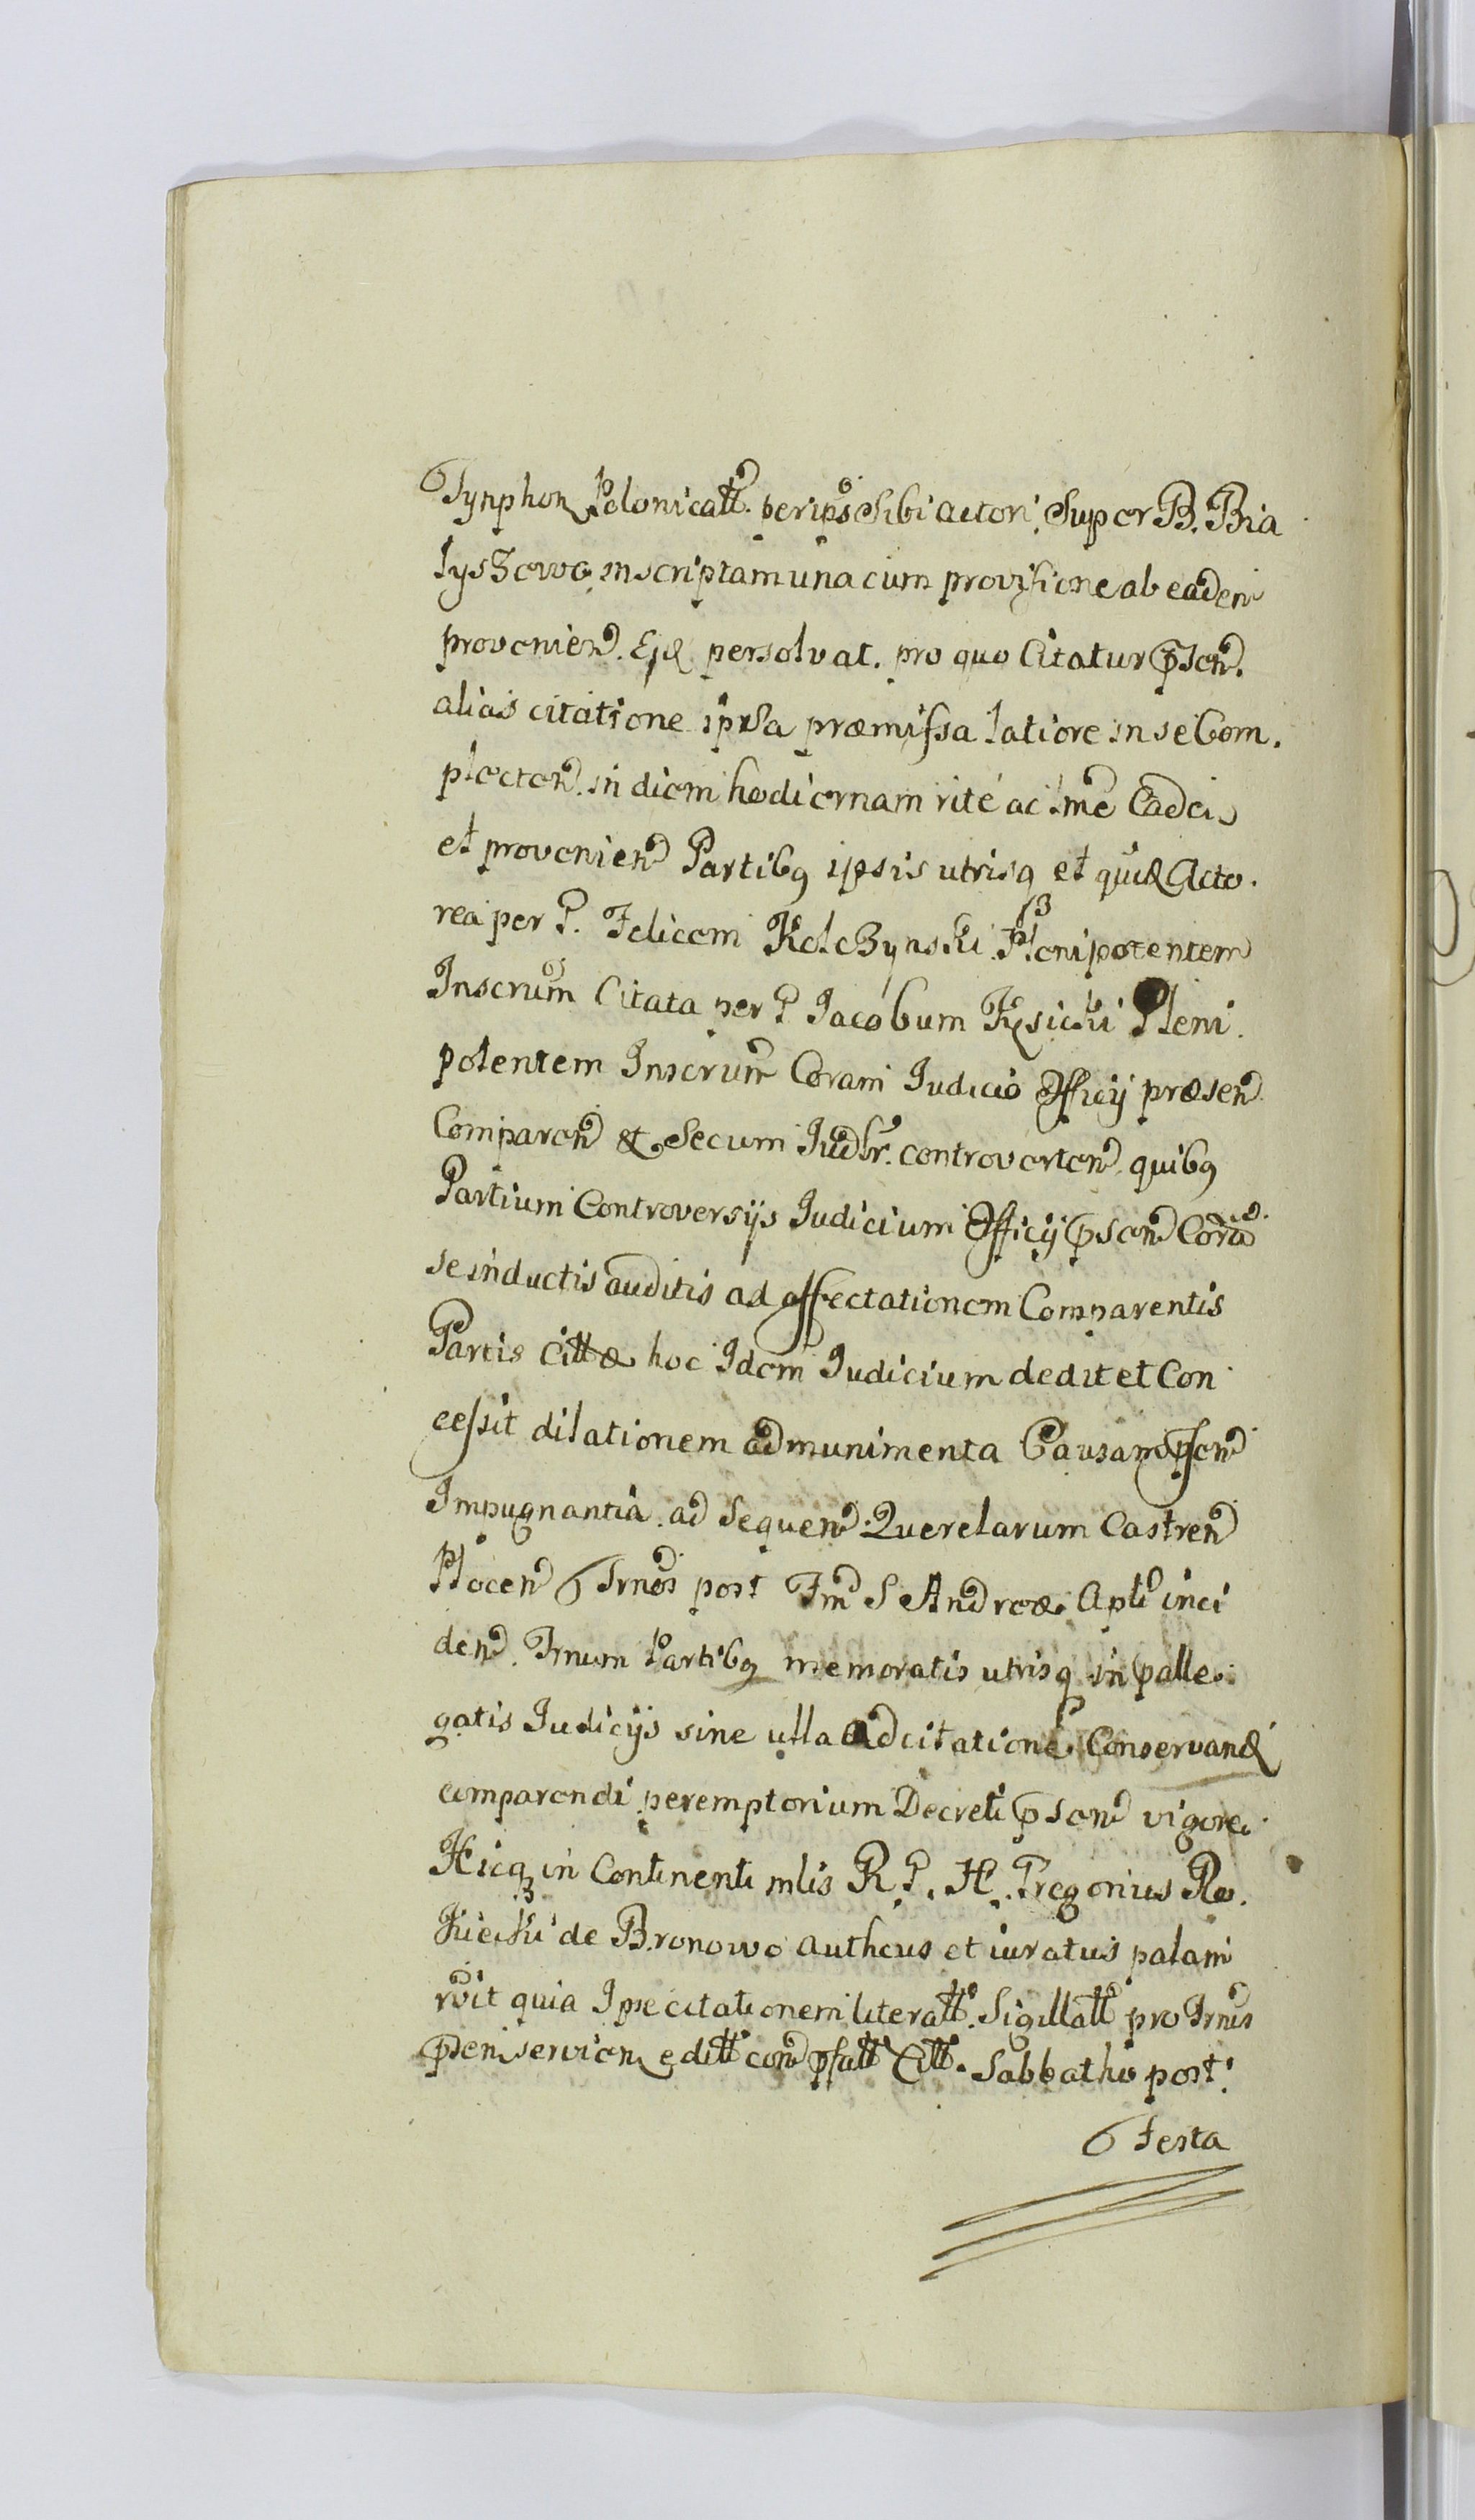 Tynphon Polonicatt. per ipsos Sibi actori Super B. Bia
lyszewo inscriptam una cum provisione ab eadem
provenien. Eiq persolvat. pro quo Citatur pnsen.
alias citatione ipsa præmissa latiore in se Com.
plecten. in diem hodiernam rite ac ltme Caden
et provenien Partibq ipsis utrisq et quid Acto.
rea per P. Felicem Kolczynski Plenipotentem
Inscrum Citata per P Jacobum Kęsicki Pleni.
potentem Inscrum Coram Judicio Officij præsen
Comparen & Secum Judlr. controverten quibq
Partium Controversijs Judicium Officij psen Cora
se inductis auditis ad affectationem Comparentis
Partis Cittæ hoc Idem Judicium dedit et Con
cessit dilationem ad munimenta Causam psen
Impugnantia. ad Sequen. Querelarum Castren
Plocen Trnos post Fm S Andreæ Apli inci
den. Trnum Partibq memoratis utrisq in palle.
gatis Judicijs sine ulla adcitatione Conservand
comparendi peremptorium Decreti psen vigore
Hicq in Continenti mlis R P. H. Gregorius Ro.
kicki de Bronowo autheus et iuratus palam
rvit quia Ipse citationem literatt. Sigillatt pro Trnis
psen servien editt con pfatt Citt. Sabbatho post
Festa